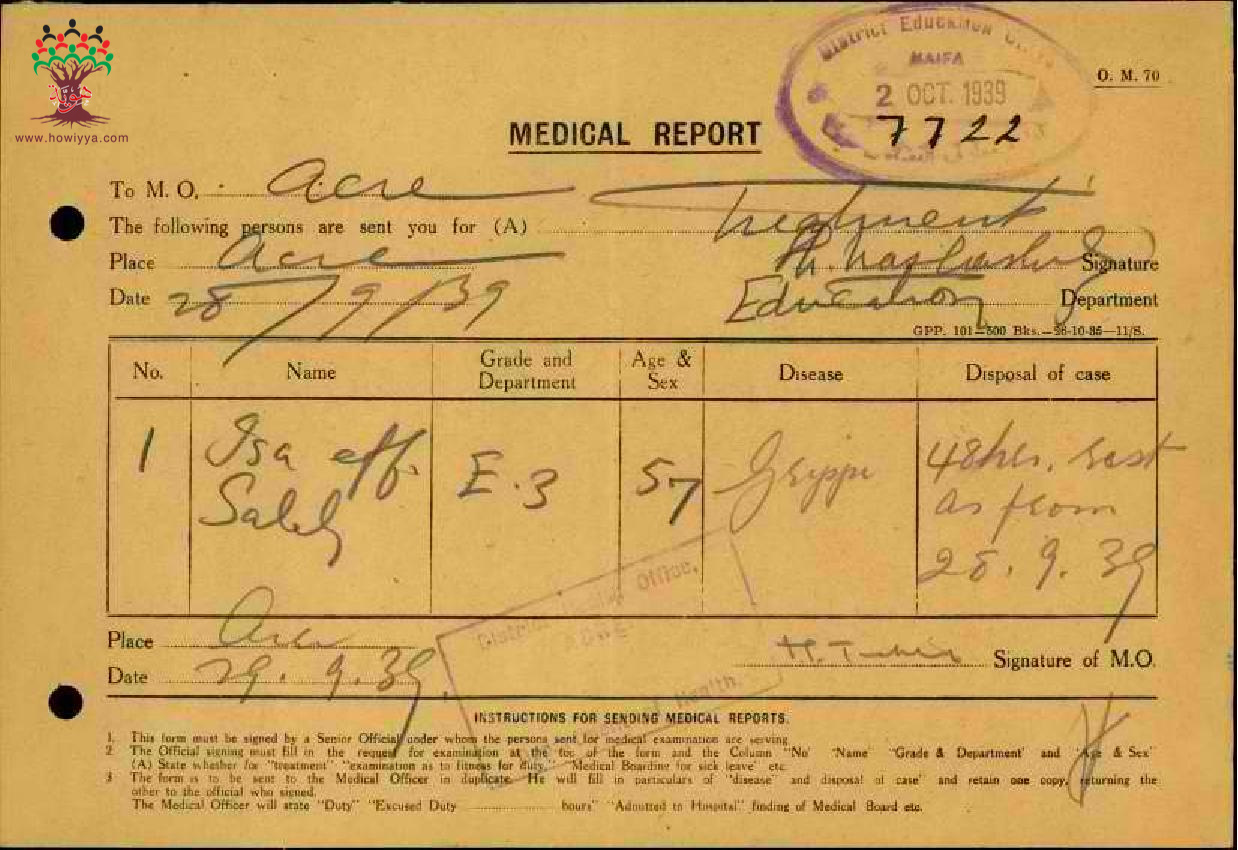 www.howiyya.com
District Education
HAIFA
2 OCT. 1939
7722
O. M. 70
MEDICAL REPORT
To M. O. Acre
The following persons are sent you for (A) Treatment
Place Acre Signature
Date 28/9/39 Education Department
GPP. 101—500 Bks.—26-10-35—11/S.
No. Name Grade and Department Age & Sex Disease Disposal of case
1 Isa eff. E.3 57 Grippe 48 hrs. rest
Saleh as from
28.9.39
District Office.
Health.
Place Acre
Date 29.9.39 Signature of M.O.
INSTRUCTIONS FOR SENDING MEDICAL REPORTS.
1. This form must be signed by a Senior Official under whom the persons sent for medical examination are serving
2 The Official signing must fill in the request for examination at the top of the form and the Column "No" "Name" "Grade & Department" and "Age & Sex"
(A) State whether for "treatment" "examination as to fitness for duty," "Medical Boarding for sick leave" etc
3 The form is to be sent to the Medical Officer in duplicate. He will fill in particulars of "disease" and disposal of case" and retain one copy, returning the
other to the official who signed.
The Medical Officer will state "Duty" "Excused Duty ........ hours" "Admitted to Hospital" finding of Medical Board etc.